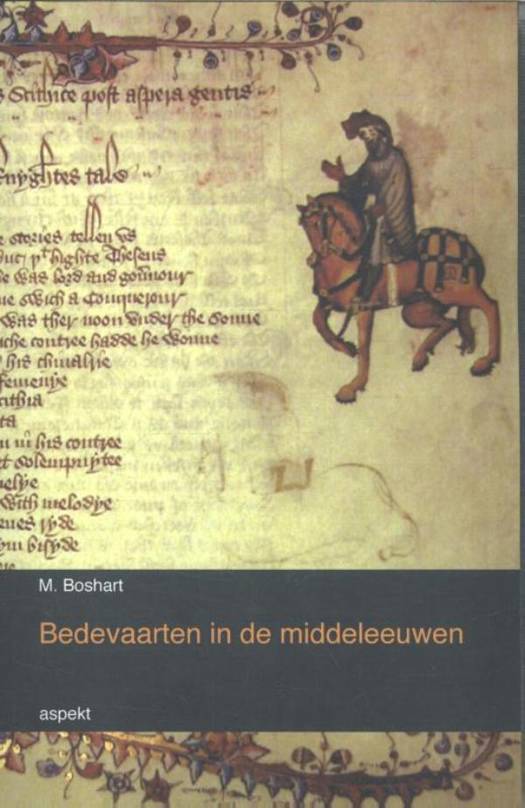 s Scithice post aspera gentis
knyghtes tale
stories tellen vs
duc þᵗ highte Theseus
he was lord and gouernour
me swich a Conquerour
was ther noon vnder the sonne
riche contree hadde he wonne
his chiualrie
femenye
cithia
ta
in his contree
et solempnytee
with melodye
ryde
hym bisyde
M. Boshart
Bedevaarten in de middeleeuwen
aspekt